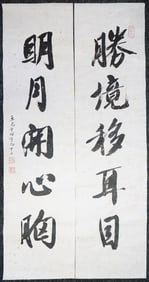 勝境移耳目
明月開心胸